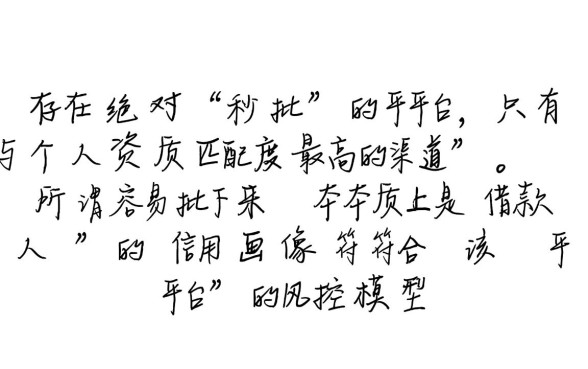 存在绝对“秒批”的平平台，只有
与个人资质匹配度最高的渠道”。
所谓容易批下来 本本质上是 借款
人”的 信用画像符符合 该 平
平台”的风控模型